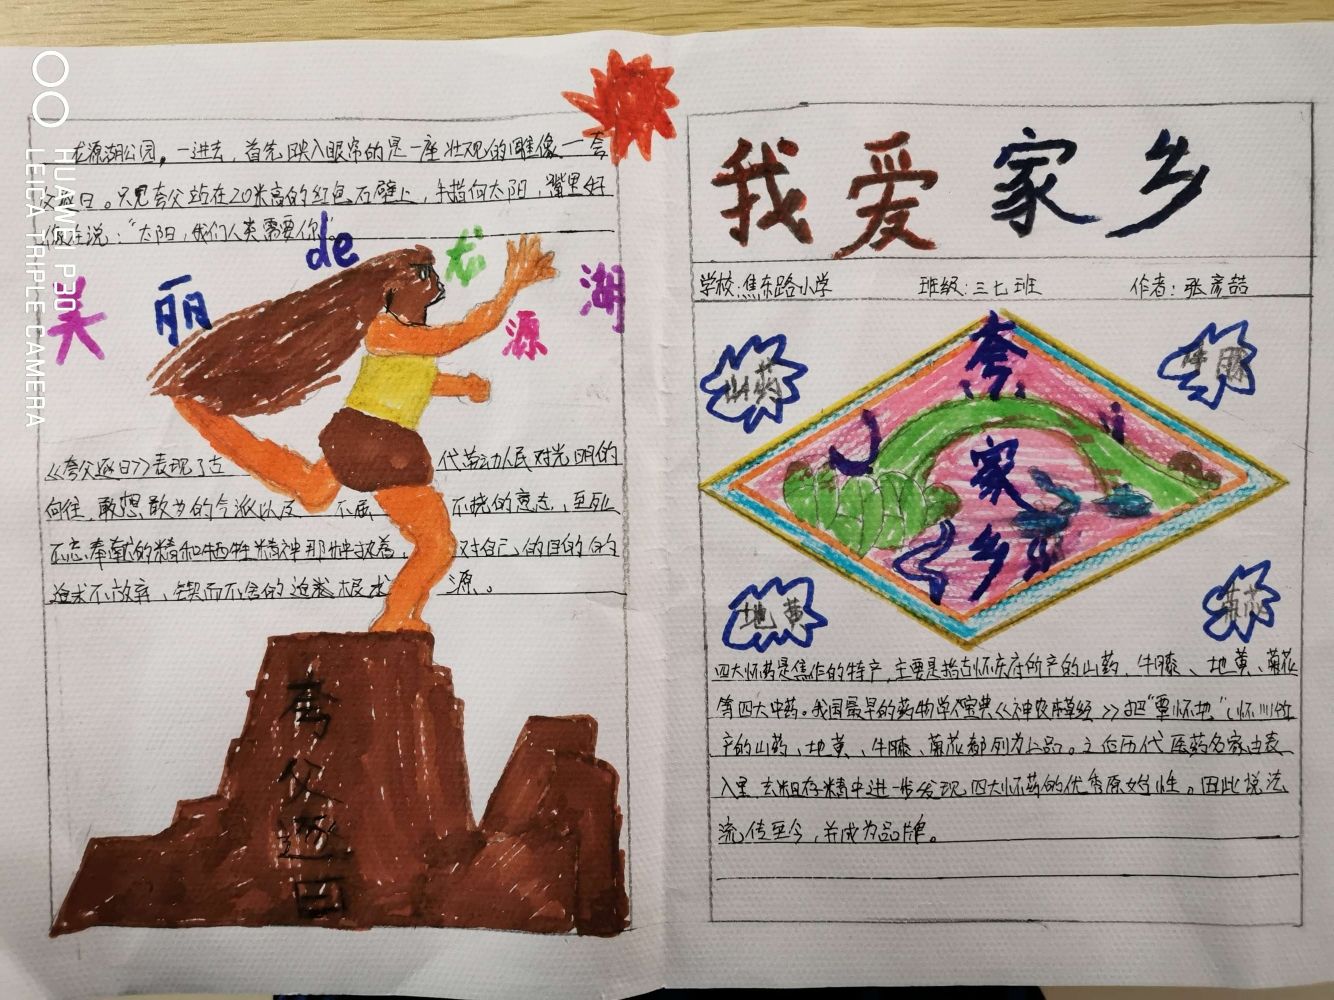 龙源湖公园,一进去,首先映入眼帘的是一座壮观的雕像—夸
父逐日。只见夸父站在20米高的红色石壁上,手指向太阳,嘴里好
像在说:“太阳,我们人类需要你”
美丽de龙源湖
《夸父逐日》表现了古代劳动人民对光明的
向往,敢想敢为的气派以及不屈不挠的意志,至死
不忘奉献的精和牺牲精神那种执着,对自己的目的的
追求不放弃,锲而不舍的追求根本源。
夸父逐日
我爱家乡
学校:焦东路小学 班级:三七班 作者:张彦喆
山药
牛膝
夸家乡
地黄
菊花
四大怀药是焦作的特产,主要是指古怀庆府所产的山药、牛膝、地黄、菊花
等四大中药。我国最早的药物学宝典《神农本草经》把“覃怀地”(怀川)所
产的山药、地黄、牛膝、菊花都列为上品。
入里、去粗存精中进一步发现四大怀药的优秀原始性。因此说流
流传至今,并成为品牌。
HUAWEI P30
LEICA TRIPLE CAMERA